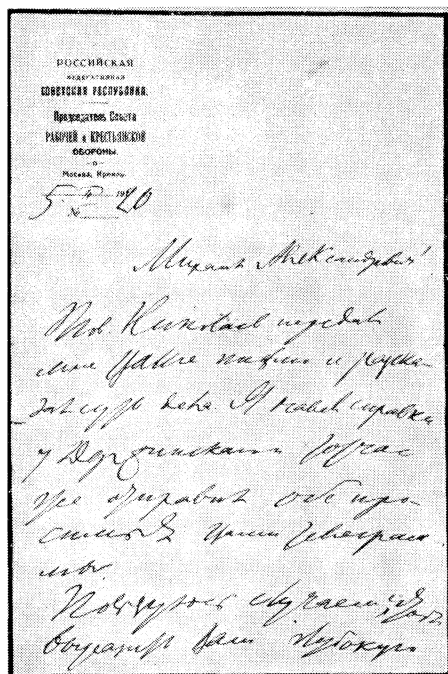 РОССИЙСКАЯ
ФЕДЕРАТИВНАЯ
СОВЕТСКАЯ РЕСПУБЛИКА.
Председатель Совета
РАБОЧЕЙ и КРЕСТЬЯНСКОЙ
ОБОРОНЫ.
Москва, Кремль.
5 4 1920
№
Михаил Александрович!
Тов. Николаев передал
мне Ваше письмо и расска-
зал суть дела. Я навел справки
у Дзержинского и тотчас
же отправил обе про-
симые Вами телеграм
мы.
Пользуюсь случаем, чтобы
выразить Вам глубокую